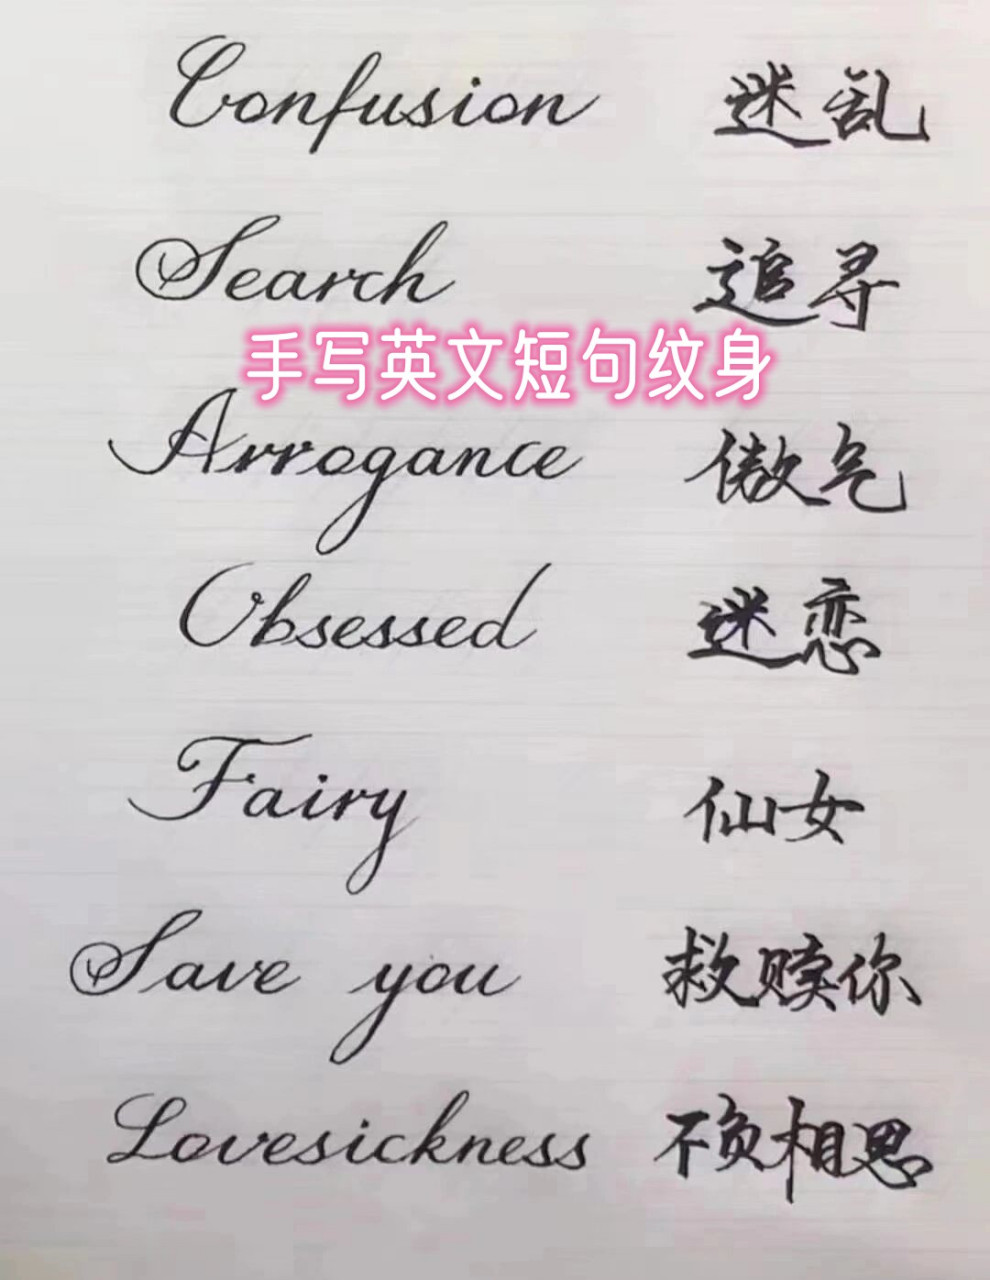 Confusion 迷乱
Search 追寻
手写英文短句纹身
Arrogance 傲气
Obsessed 迷恋
Fairy 仙女
Save you 救赎你
Lovesickness 不负相思